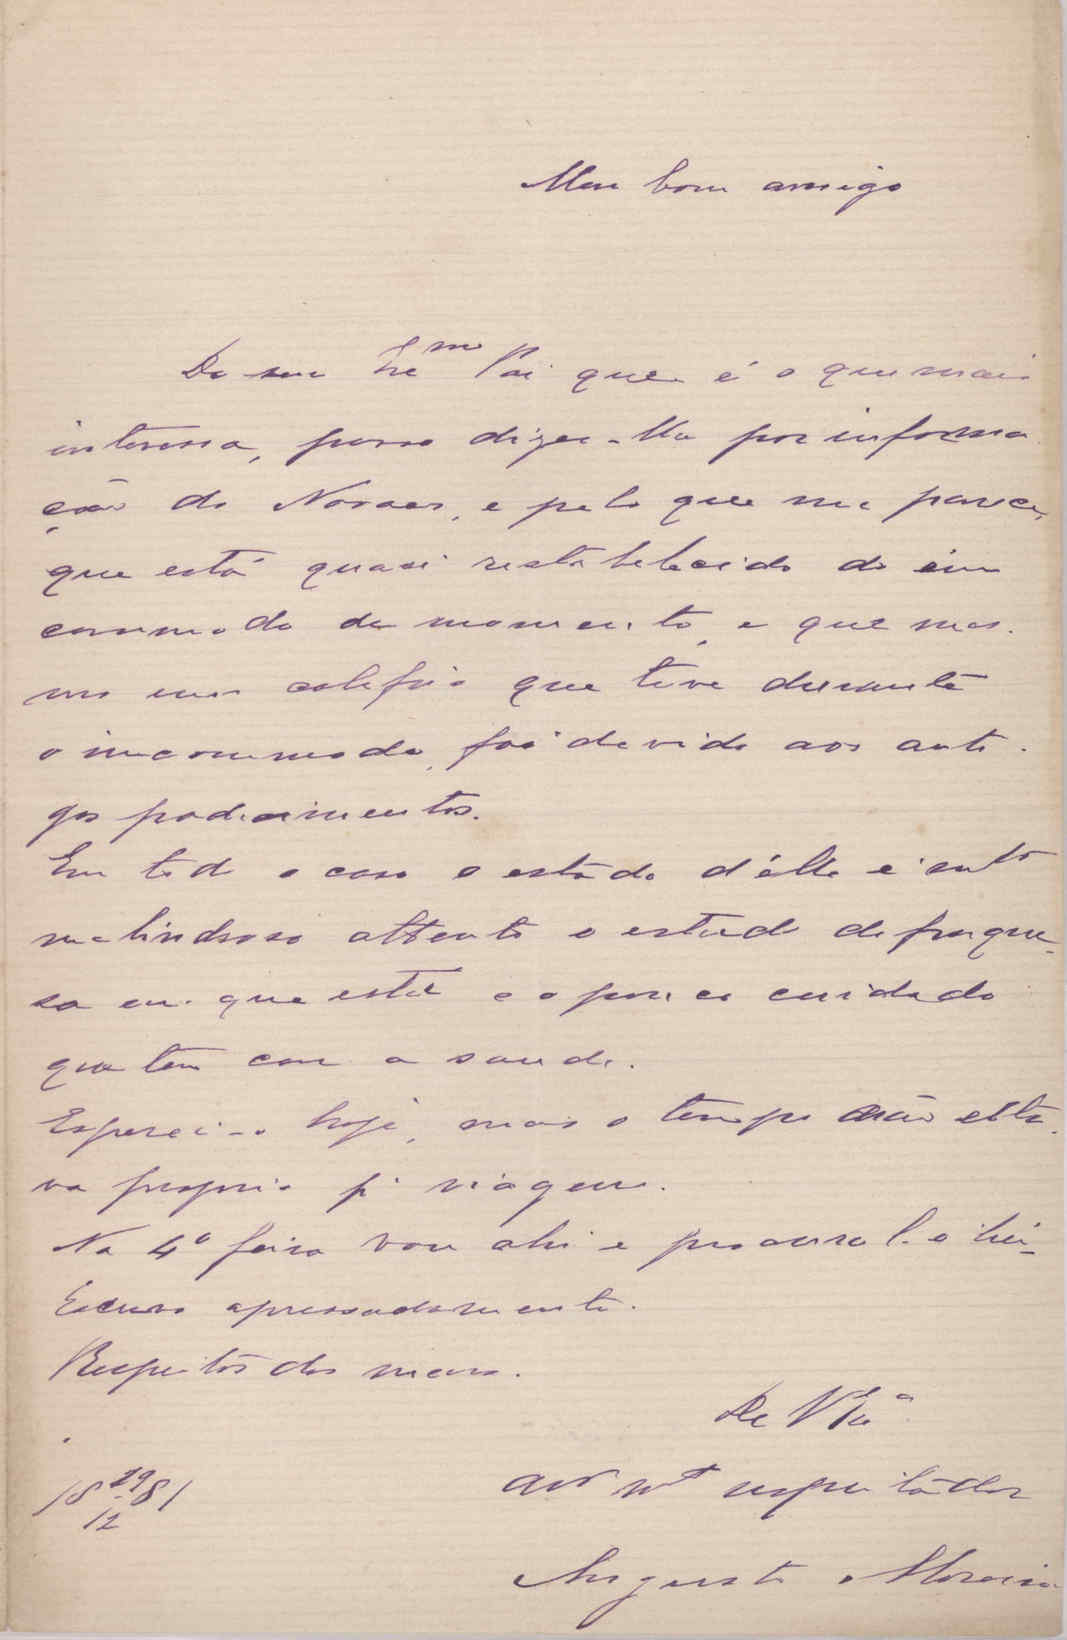 Meu bom amigo
Do seu Ex.mo Pai que é o que mais
interessa, posso dizer-lhe por informa
ção do Novaes, e pelo que me parece,
que está quasi restabelecido do in
commodo de momento, e que mes-
mo um calefrio que teve durante
o incommodo, foi devido aos anti-
gos padecimentos.
Em todo o caso o estado d'elle é
melindroso attento o estado de fraque-
sa em que está e o pouco cuidado
que tem com a saude.
Esperei-o hoje, mas o tempo não esta-
va proprio p.ª viagem.
Na 4ª feira vou ahi e procural-o hei-
Escrevo apressadamente.
Respeitos dos meus.
De V. Ex.ª
am.º m.to respeitador
Augusto Moreira
18 29/12 81